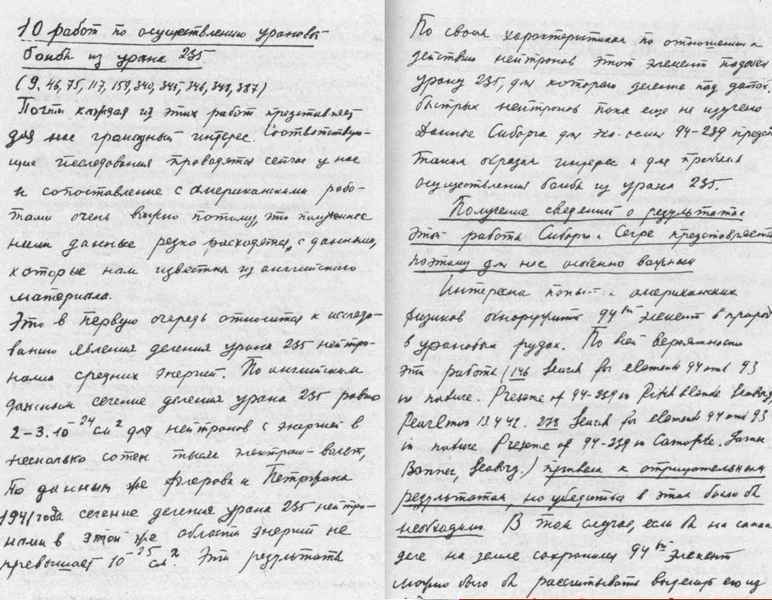 10 работ по осуществлению урановой
бомбы из урана 235
(9, 46, 75, 117, 159, 340, 345, 346, 348, 387)
Почти каждая из этих работ представляет
для нас громадный интерес. Соответствую-
щие исследования проводятся сейчас у нас
и сопоставление с американскими рабо-
тами очень важно потому, что полученное
ними данные резко расходятся с данными,
которые нам известны из английского
материала.
Это в первую очередь относится к исследо-
ванию явления деления урана 235 нейтро-
нами средних энергий. По английским
данным сечение деления урана 235 равно
2-3.10⁻²⁴см² для нейтронов с энергией в
несколько сотен тысяч электрон-вольт,
По данным же Флерова и Петржака
1941 года сечение деления урана 235 нейтро-
нами в этой же области энергий не
превышает 10⁻²⁵см². Эти результаты
По своим характеристикам по отношению к
действию нейтронов этот элемент подобен
урану 235, для которого деление под
быстрых нейтронов пока еще не изучено
Данные Сиборга для эка-осмия 94-239
таким образом интерес и для проблемы
осуществления бомбы из урана 235.
Получение сведений о результатах
этой работы Сиборга и Сегре представляется
поэтому для нас особенно важным
Интересна американских
физиков обнаружить 94ый элемент в природе
в урановых рудах. По всей вероятности
эти работы (146 Search for elements 94 and 93
in nature. Presence of 94-239 in Pitchblende Seaborg
Pearlman 13 4 42. 273 Search for elements 94 and 93
in nature Presence of 94-239 in
Bonner, Seaborg.) привели к отрицательным
результатам, но убедиться в этом было бы
необходимо. В том случае, если бы на самом
деле на земле сохранился 94ый элемент
можно было бы рассчитывать выделить его из